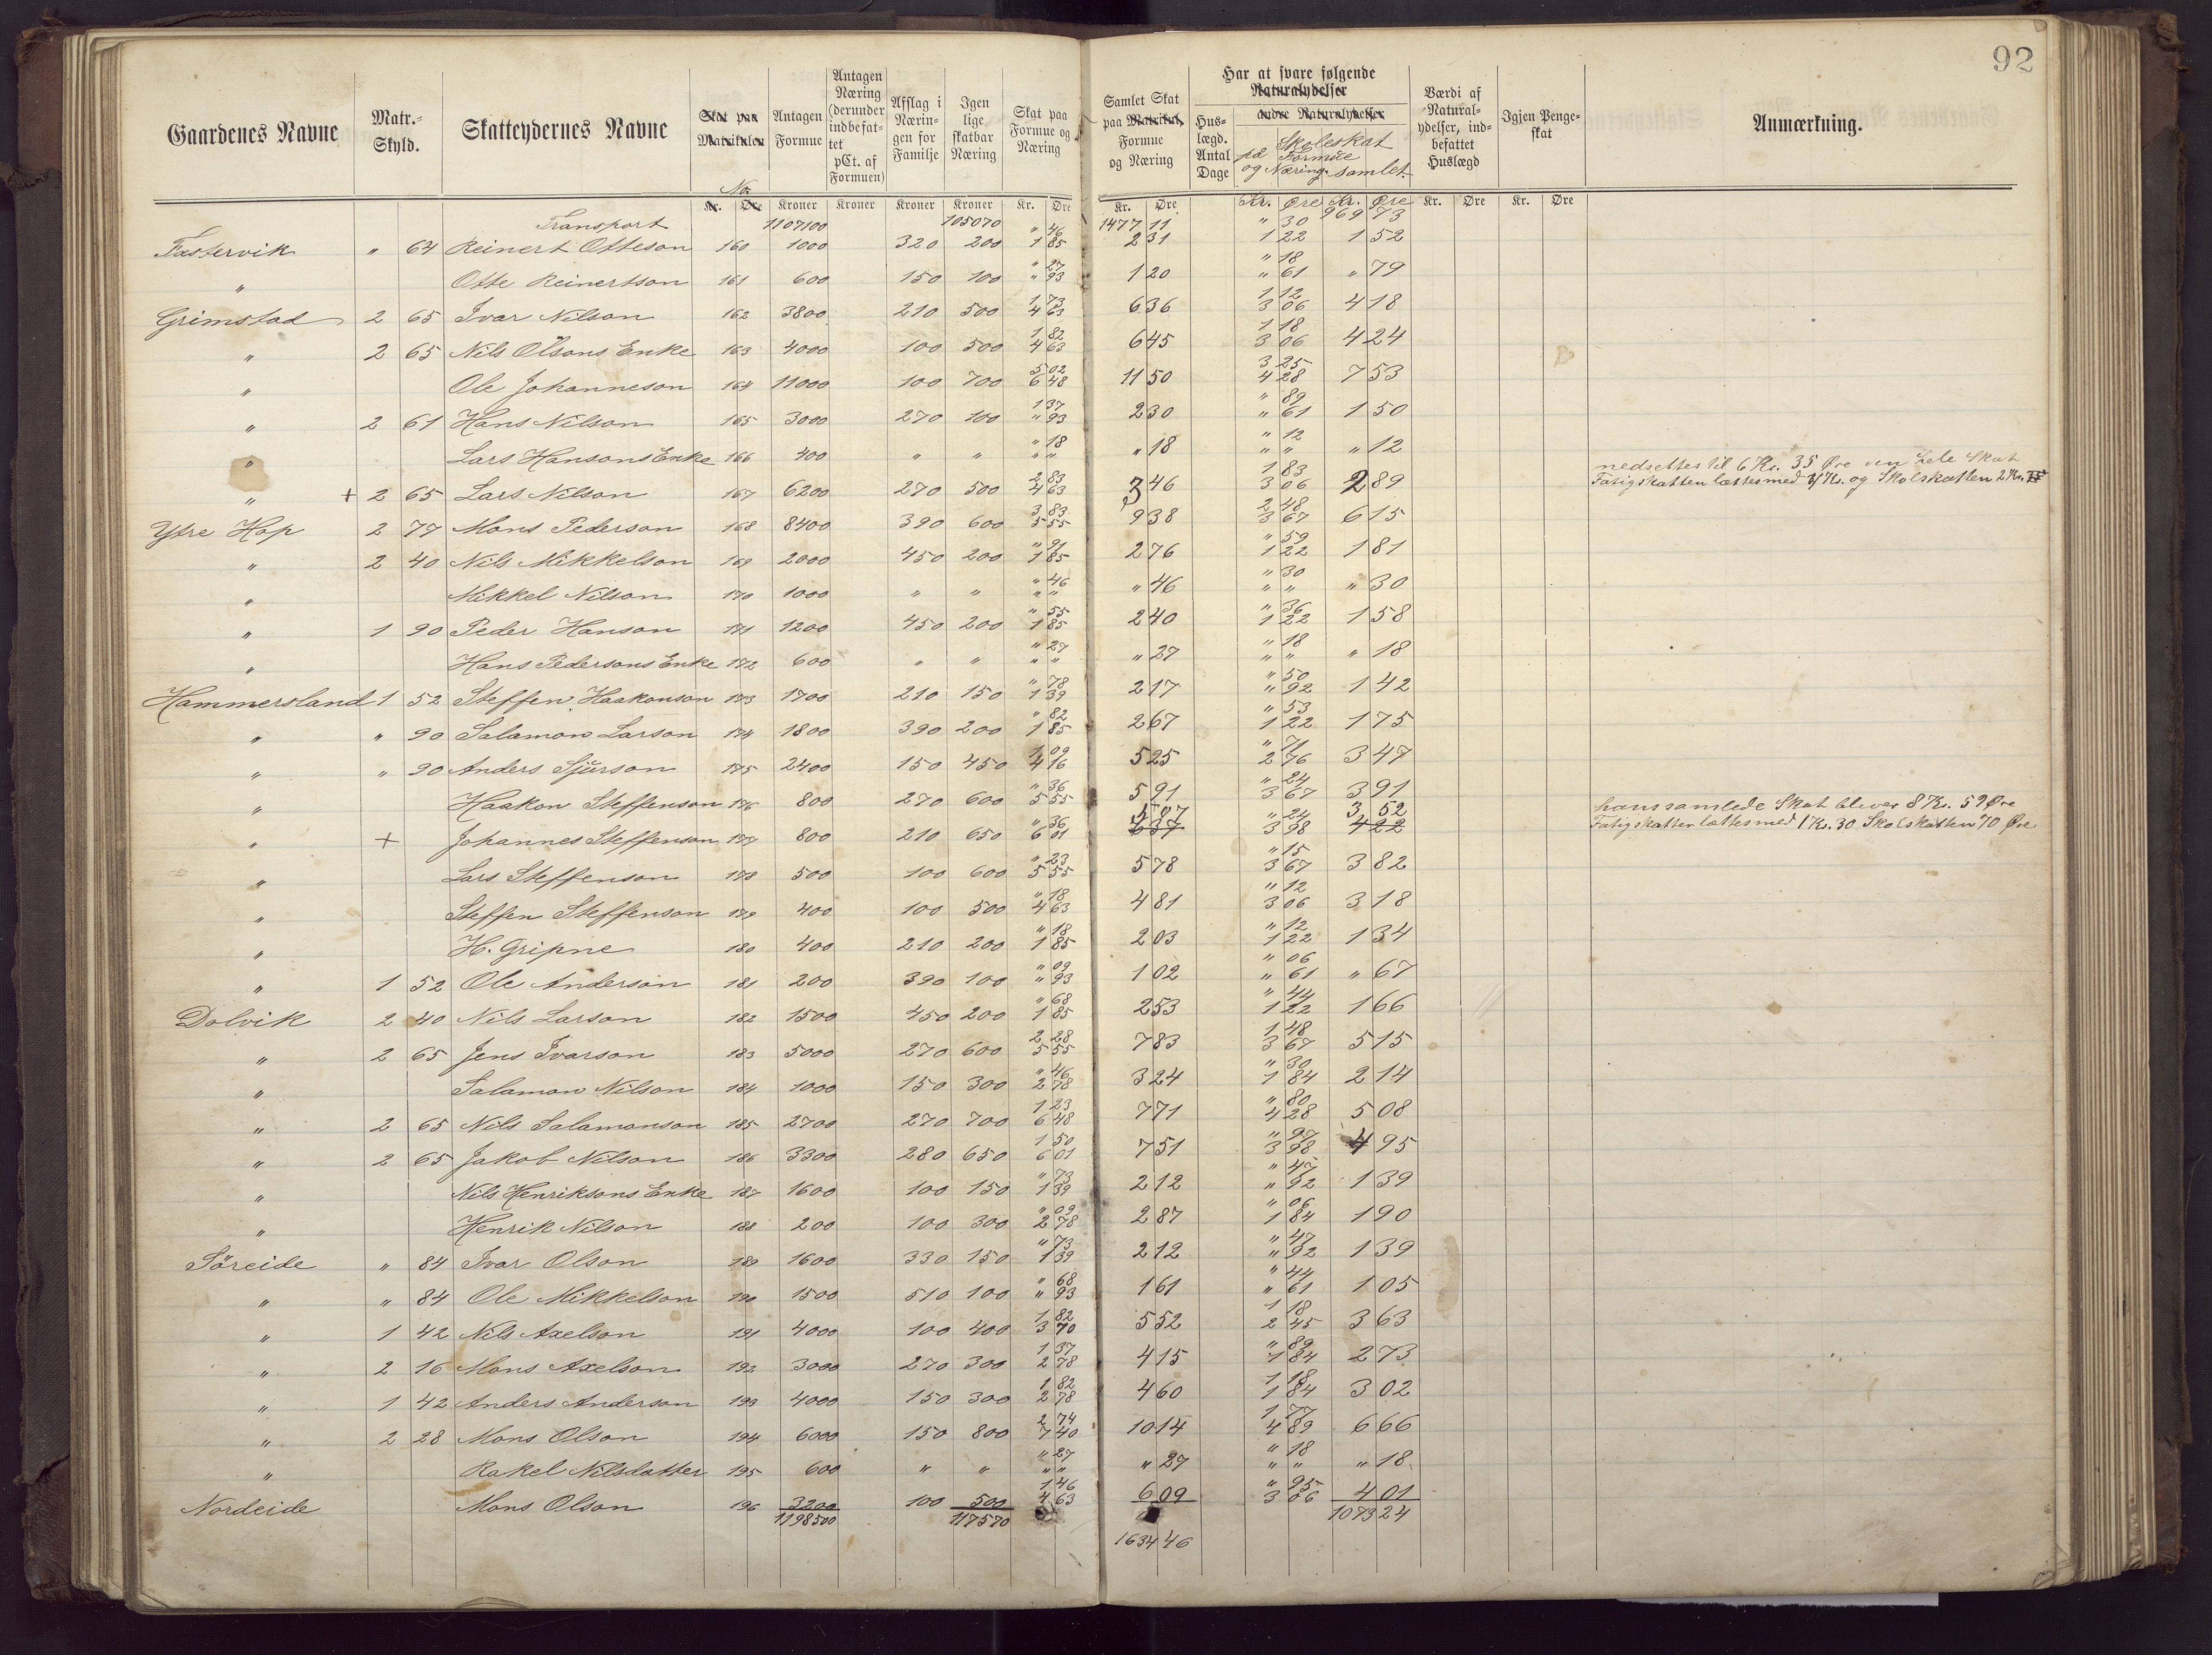 92
Gaardenes Navne | Matr.= Skyld. | Skatteydernes Navne | Skat paa Matrikulen | Antagen Formue | Antagen Næring (derunder indbefattet pCt. af Formuen) | Afslag i Næringen for Familje | Igen lige skatbar Næring | Skat paa Formue og Næring | Samlet Skat paa Matrikul, Formue og Næring | Har at svare følgende Naturalydelser | Huslægd. Antal Dage | andre Naturalydelser | Skoleskat på Formue og Næring samlet. | Værdi af Naturalydelser, indbefattet Huslægd | Igjen Pengeskat | Anmærkning.
No. | Kr. Øre | Kroner | Kroner | Kroner | Kroner | Kr. Øre | Kr. Øre | Kr. Øre | Kr. Øre | Kr. Øre | Kr. Øre
Transport 1107100 105070 1477 11 969 73
Fæstervik " 64 Reinert Otteson 160 1000 320 200 " 46 1 85 2 31 " 30 1 22 1 52
" Otte Reinertson 161 600 150 100 " 27 " 93 1 20 " 18 " 61 " 79
Grimstad 2 65 Ivar Nilson 162 3800 210 500 1 73 4 63 6 36 1 12 3 06 4 18
" 2 65 Nils Olsons Enke 163 4000 100 500 1 82 4 63 6 45 1 18 3 06 4 24
" Ole Johanneson 164 11000 100 700 5 02 6 48 11 50 3 25 4 28 7 53
" 2 61 Hans Nilson 165 3000 270 100 1 37 " 93 2 30 " 89 " 61 1 50
" Lars Hansons Enke 166 400 " " " 18 " " " 18 " 12 " " " 12
nedsettes til 6 Kr. 35 Øre
" + 2 65 Lars Nilson 167 6200 270 500 2 83 4 63 3 46 1 83 3 06 2 89 Fatigskatten lættes med 4 Kr. og Skolskatten 2 Kr.
Ytre Hop 2 77 Mons Pederson 168 8400 390 600 3 83 5 55 9 38 2 48 3 67 6 15
" 2 40 Nils Mikkelson 169 2000 450 200 " 91 1 85 2 76 " 59 1 22 1 81
" Mikkel Nilson 170 1000 " " " 46 " " " 46 " 30 " " " 30
" 1 90 Peder Hanson 171 1200 450 200 " 55 1 85 2 40 " 36 1 22 1 58
" Hans Pedersons Enke 172 600 " " " 27 " " " 27 " 18 " " " 18
Hammersland 1 52 Steffen Haakonson 173 1700 210 150 " 78 1 39 2 17 " 50 " 92 1 42
" " 90 Salamon Larson 174 1800 390 200 " 82 1 85 2 67 " 53 1 22 1 75
" " 90 Anders Sjurson 175 2400 150 450 1 09 4 16 5 25 " 71 2 76 3 47
" Haakon Steffenson 176 800 270 600 " 36 5 55 5 91 " 24 3 67 3 91
5 07 3 52 hans samlede Skat bliver 8 Kr. 59 Øre
" + Johannes Steffenson 177 800 210 650 " 36 6 01 6 37 " 24 3 98 4 22 Fatigskatten lættes med 1 Kr. 30 Skolskatten 70 Øre
" Lars Steffenson 178 500 100 600 " 23 5 55 5 78 " 15 3 67 3 82
" Steffen Steffenson 179 400 100 500 " 18 4 63 4 81 " 12 3 06 3 18
" H. Gripne 180 400 210 200 " 18 1 85 2 03 " 12 1 22 1 34
" 1 52 Ole Anderson 181 200 390 100 " 09 " 93 1 02 " 06 " 61 " 67
Dolvik 2 40 Nils Larson 182 1500 450 200 " 68 1 85 2 53 " 44 1 22 1 66
" 2 65 Jens Ivarson 183 5000 270 600 2 28 5 55 7 83 1 48 3 67 5 15
" Salamon Nilson 184 1000 150 300 " 46 2 78 3 24 " 30 1 84 2 14
" 2 65 Nils Salamonson 185 2700 270 700 1 23 6 48 7 71 " 80 4 28 5 08
" 2 65 Jakob Nilson 186 3300 280 650 1 50 6 01 7 51 " 97 3 98 4 95
" Nils Henriksons Enke 187 1600 100 150 " 73 1 39 2 12 " 47 " 92 1 39
" Henrik Nilson 188 200 100 300 " 09 2 78 2 87 " 06 1 84 1 90
Söreide " 84 Ivar Olson 189 1600 330 150 " 73 1 39 2 12 " 47 " 92 1 39
" " 84 Ole Mikkelson 190 1500 510 100 " 68 " 93 1 61 " 44 " 61 1 05
" 1 42 Nils Axelson 191 4000 100 400 1 82 3 70 5 52 1 18 2 45 3 63
" 2 16 Mons Axelson 192 3000 270 300 1 37 2 78 4 15 " 89 1 84 2 73
" 1 42 Anders Anderson 193 4000 150 300 1 82 2 78 4 60 1 18 1 84 3 02
" 2 28 Mons Olson 194 6000 150 800 2 74 7 40 10 14 1 77 4 89 6 66
" Rakel Nilsdatter 195 600 " " " 27 " " " 27 " 18 " " " 18
Nordeide Mons Olson 196 3200 100 500 1 46 4 63 6 09 " 95 3 06 4 01
1198500 117570 1073 24
1634 46